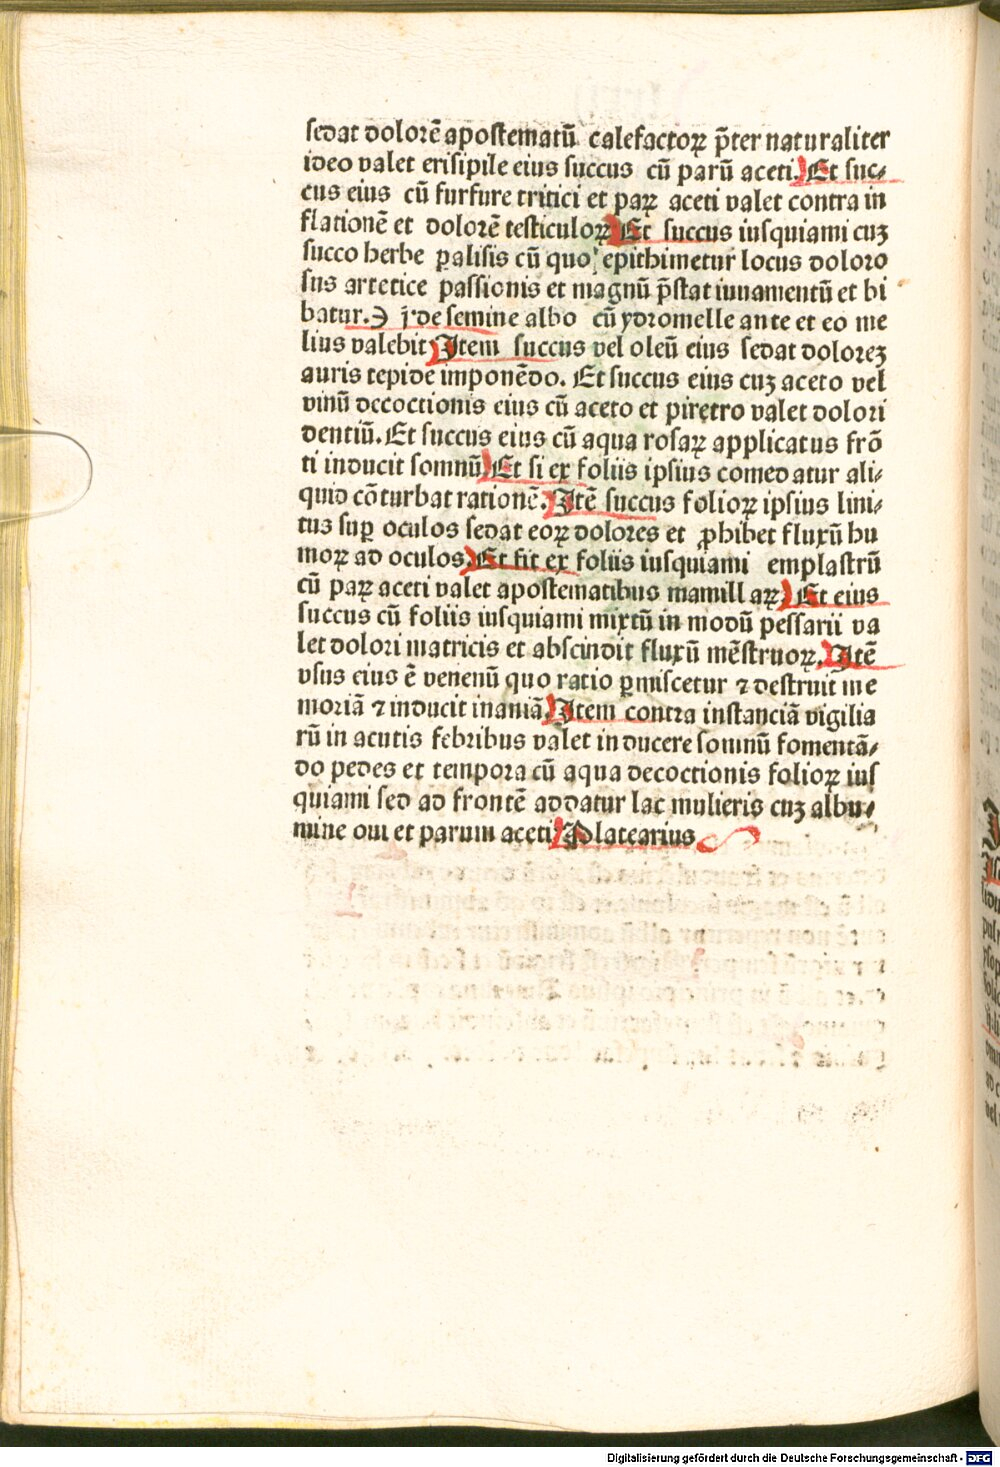 sedat dolorē apostematū calefactoꝝ p̄ter naturaliter
ideo valet erisipile eius succus cū parū aceti. Et suc⸗
cus eius cū furfure tritici et paꝝ aceti valet contra in
flationē et dolorē testiculoꝝ Et succus iusquiami cuꝫ
succo herbe ꝑalisis cū quo epithimetur locus doloro
sus artetice passionis et magnū p̄stat iuuamentū et bi
batur. de semine albo cū ydromelle ante et eo me
lius valebit Item succus vel oleū eius sedat doloreꝫ
auris tepide imponēdo. Et succus eius cuꝫ aceto vel
vinū decoctionis eius cū aceto et piretro valet dolori
dentiū. Et succus eius cū aqua rosaꝝ applicatus frō
ti inducit somnū Et si ex foliis ipsius comedatur ali⸗
quid cōturbat rationē. Itē succus folioꝝ ipsius lini⸗
tus suꝑ oculos sedat eoꝝ dolores et ꝓhibet fluxū hu
moꝝ ad oculos. Et fit ex foliis iusquiami emplastrū
cū paꝝ aceti valet apostematibus mamillaꝝ Et eius
succus cū foliis iusquiami mixtū in modū pessarii va
let dolori matricis et abscindit fluxū mēstruoꝝ. Itē
vsus eius ē venenū quo ratio ꝑmiscetur ⁊ destruit me
moriā ⁊ inducit inaniā. Item contra instanciā vigilia
rū in acutis febribus valet inducere somnū fomentā⸗
do pedes et tempora cū aqua decoctionis folioꝝ ius
quiami sed ad frontē addatur lac mulieris cuꝫ albu⸗
mine oui et parum aceti Platearius
Digitalisierung gefördert durch die Deutsche Forschungsgemeinschaft - DFG